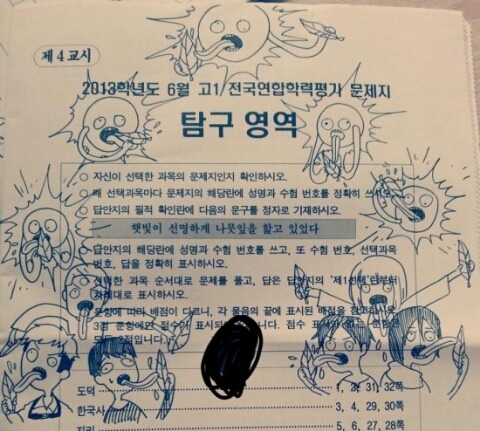 제 4 교시
2013학년도 6월 고1 전국연합학력평가 문제지
탐구 영역
○ 자신이 선택한 과목의 문제지인지 확인하시오.
○ 매 선택과목마다 문제지의 해당란에 성명과 수험 번호를 정확히 쓰시오.
○ 답안지의 필적 확인란에 다음의 문구를 정자로 기재하시오.
햇빛이 선명하게 나뭇잎을 핥고 있었다
답안지의 해당란에 성명과 수험 번호를 쓰고, 또 수험 번호, 선택과목
번호, 답을 정확히 표시하시오.
선택한 과목 순서대로 문제를 풀고, 답은 답안지의 '제1선택'란부터
차례대로 표시하시오.
문항에 따라 배점이 다르니, 각 물음의 끝에 표시된 배점을 참고하시오.
3점 문항에만 점수가 표시되 니다. 점수 표시가 없는 문항은
2점입니다.
도덕 1, 2, 31, 32쪽
한국사 3, 4, 29, 30쪽
지리 5, 6, 27, 28쪽